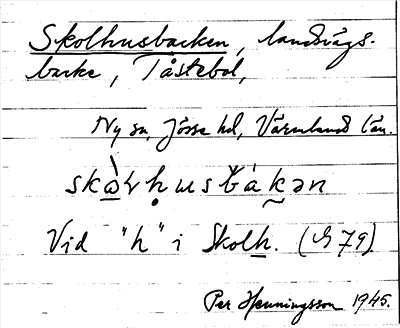 Skolhusbacken, landsvägs-
backe, Tåstebol,
Ny sn, Jösse hd, Värmlands län.
skòlhusbákən
Vid "h" i Skolh. (79)
Per Henningsson 1945.